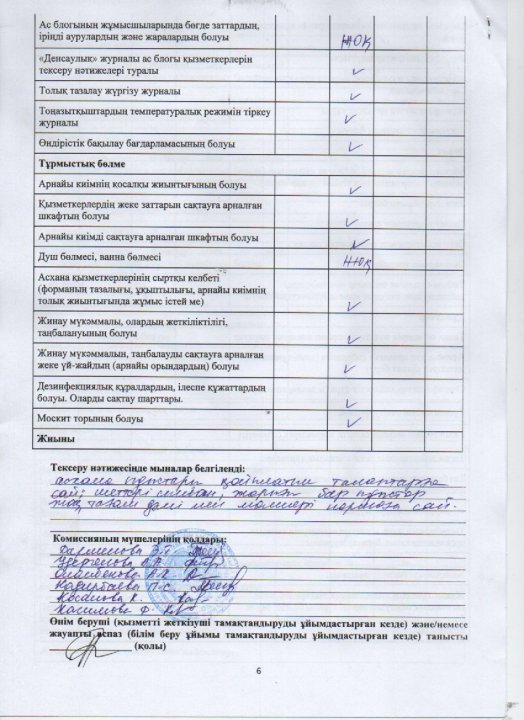 Ас блогының жұмысшыларында бөгде заттардың,
іріңді аурулардың және жаралардың болуы
жоқ
«Денсаулық» журналы ас блогы қызметкерлерін
тексеру нәтижелері туралы
✓
Толық тазалау жүргізу журналы
✓
Тоңазытқыштардың температуралық режимін тіркеу
журналы
✓
Өндірістік бақылау бағдарламасының болуы
✓
Тұрмыстық бөлме
Арнайы киімнің қосалқы жиынтығының болуы
✓
Қызметкерлердің жеке заттарын сақтауға арналған
шкафтың болуы
✓
Арнайы киімді сақтауға арналған шкафтың болуы
✓
Душ бөлмесі, ванна бөлмесі
жоқ
Асхана қызметкерлерінің сыртқы келбеті
(форманың тазалығы, ұқыптылығы, арнайы киімнің
толық жиынтығында жұмыс істей ме)
✓
Жинау мүкәммалы, олардың жеткіліктілігі,
таңбалануының болуы
✓
Жинау мүкәммалын, таңбалауды сақтауға арналған
жеке үй-жайдың (арнайы орындардың) болуы
✓
Дезинфекциялық құралдардың, ілеспе құжаттардың
болуы. Оларды сақтау шарттары.
✓
Москит торының болуы
✓
Жиыны
Тексеру нәтижесінде мыналар белгіленді:
асхана ыдыстары қойылатын талаптарға
сай; шеттері сынған, жарығы бар ыдыстар
жоқ. тағам дәмі мен мөлшері нормаға сай.
Комиссияның мүшелерінің қолдары:
Өнім беруші (қызметті жеткізуші тамақтандыруды ұйымдастырған кезде) және/немесе
жауапты аспаз (білім беру ұйымы тамақтандыруды ұйымдастырған кезде) танысты
(қолы)
6